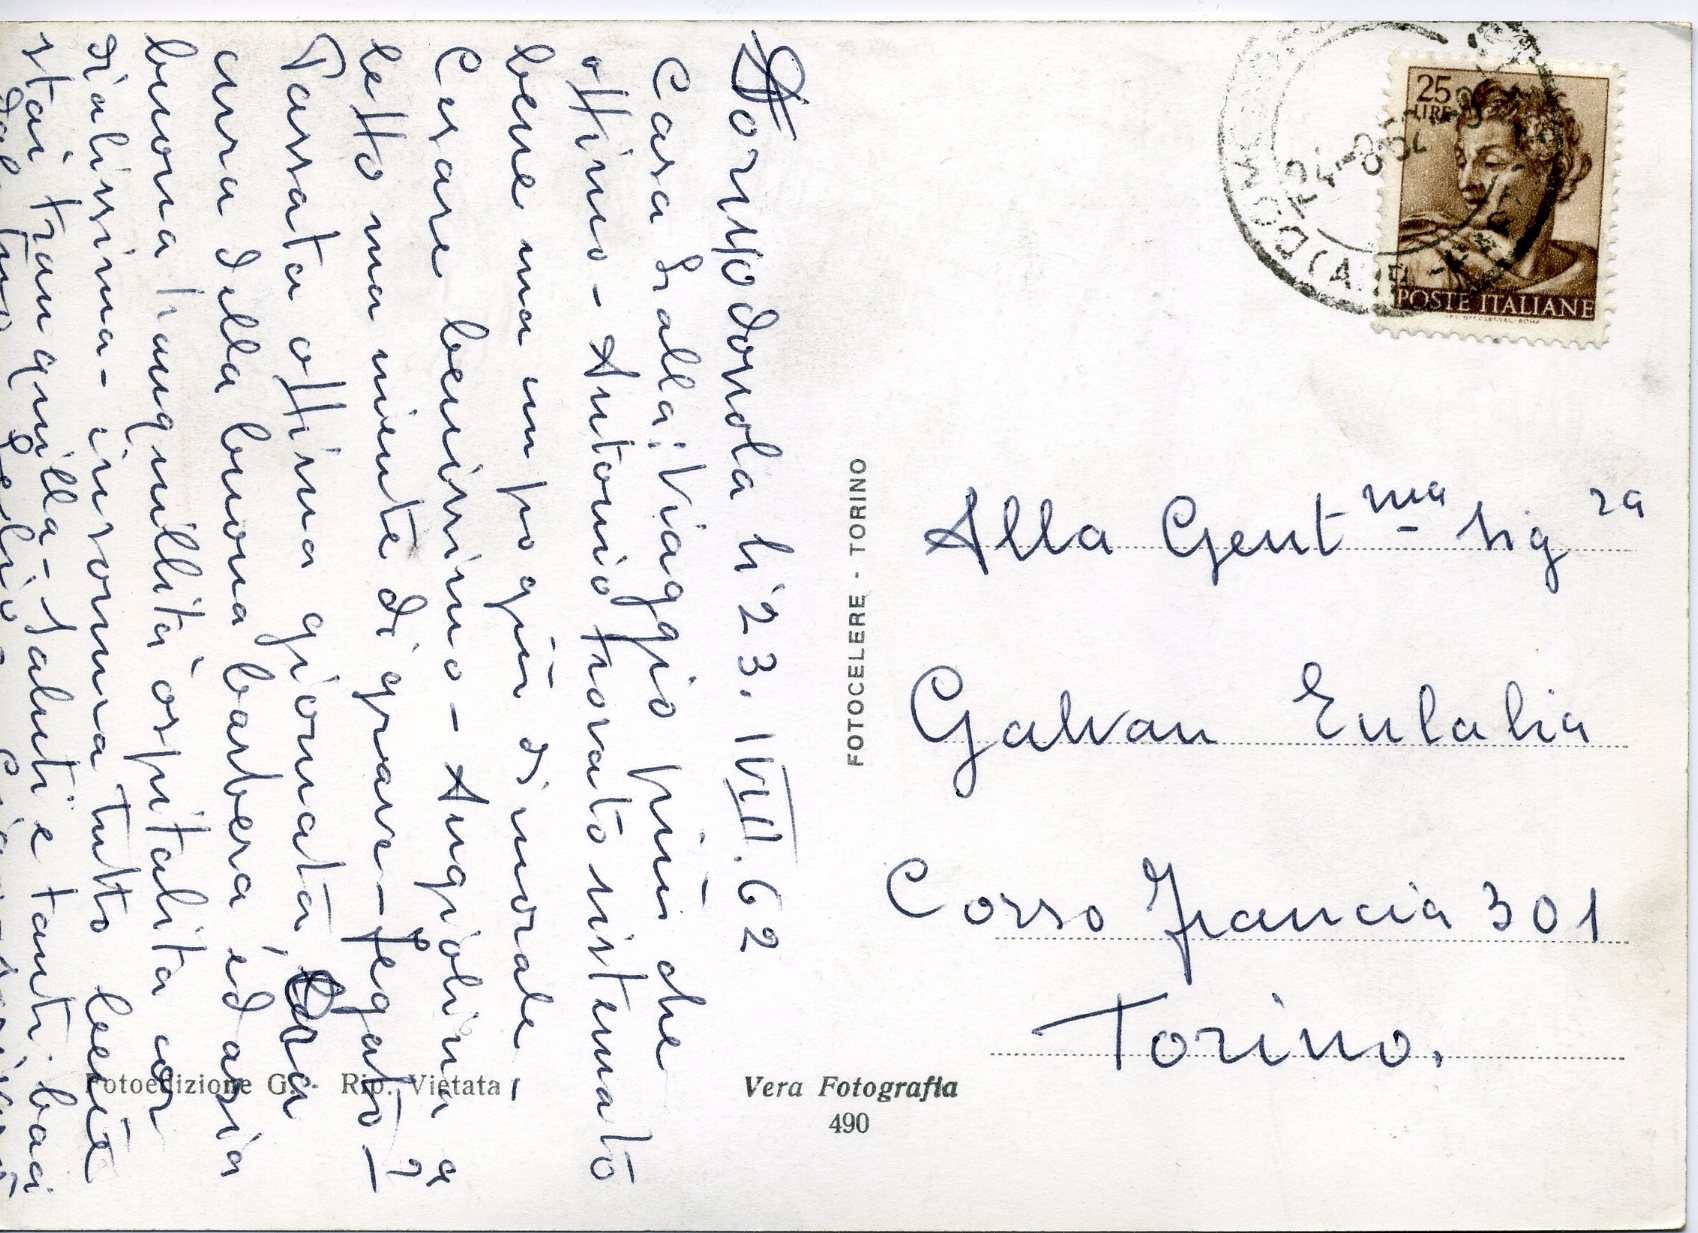 Dormodonola li 23. VIII. 62
Cara Lalla: Viaggio più che
ottimo - Antonio trovato sistemato
bene ma un po giù di morale,
Cesare benissimo - Angiolina a
letto ma niente di grave - fegato - ?
Passata ottima giornata
cura della buona barbera ed aria
buona tranquillità ospitalità cor
dialissima - insomma tutto bene
stai tranquilla - Saluti e tanti baci
dal tuo
Fotoedizione G. - Rip. Vietata
Vera Fotografia
490
FOTOCELERE - TORINO
25
LIRE
POSTE ITALIANE
24-8-62
Alla Gent ma Sig ra
Galvan Eulalia
Corso Francia 301
Torino.